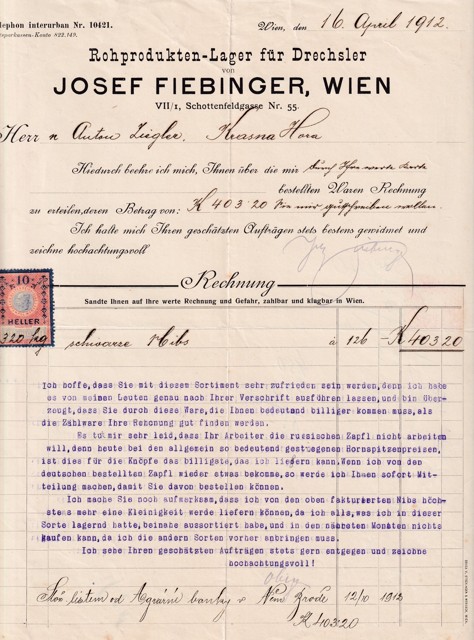 lephon interurban Nr. 10421.
tsparkassen-Konto 822.149.
Wien, den 16 April 1912.
Rohprodukten-Lager für Drechsler
von
JOSEF FIEBINGER, WIEN
VII/1, Schottenfeldgasse Nr. 55.
Herrn Anton Ziegler, Krasna Hora
Hiedurch beehre ich mich, Ihnen über die mir durch Ihre werte Karte
bestellten Waren Rechnung
zu erteilen, deren Betrag von: K 403·20 Sie mir gutschreiben wollen.
Ich halte mich Ihren geschätzten Aufträgen stets bestens gewidmet und
zeichne hochachtungsvoll
Rechnung
Sandte Ihnen auf Ihre werte Rechnung und Gefahr, zahlbar und klagbar in Wien.
10
HELLER
320 kg schwarze Nibs à 126 – K 403 20
Ich hoffe, dass Sie mit diesem Sortiment sehr zufrieden sein werden, denn ich habe
es von meinen Leuten genau nach Ihrer Vorschrift ausführen lassen, und bin über-
zeugt, dass Sie durch diese Ware, die Ihnen bedeutend billiger kommen muss, als
die Zählware Ihre Rehonung gut finden werden.
Es tu mir sehr leid, dass Ihr Arbeiter die russischen Zapfl nicht arbeiten
will, denn heute bei den allgemein so bedeutend gestiegenen Hornspitzenpreisen,
ist dies für die Knöpfe das billigste, das ich liefern kann. Wenn ich von den
deutschen bestellten Zapfl wieder etwas bekomme, so werde ich Ihnen sofort Mit-
teilung machen, damit Sie davon bestellen können.
Ich mache Sie noch aufmerksam, dass ich von den oben fakturierten Nibs höch-
stens mehr eine Kleinigkeit werde liefern können, da ich alls, was ich in dieser
Sorte lagernd hatte, beinahe aussortiert habe, und in den nächsten Monaten nichts
kaufen kann, da ich die andern Sorten vorher anbringen muss.
Ich sehe Ihren geschätzten Aufträgen stets gern entgegen und zeichne
hochachtungsvoll!
listem od Agrární banky v Něm Brodě 12/10 1912
K 403·20